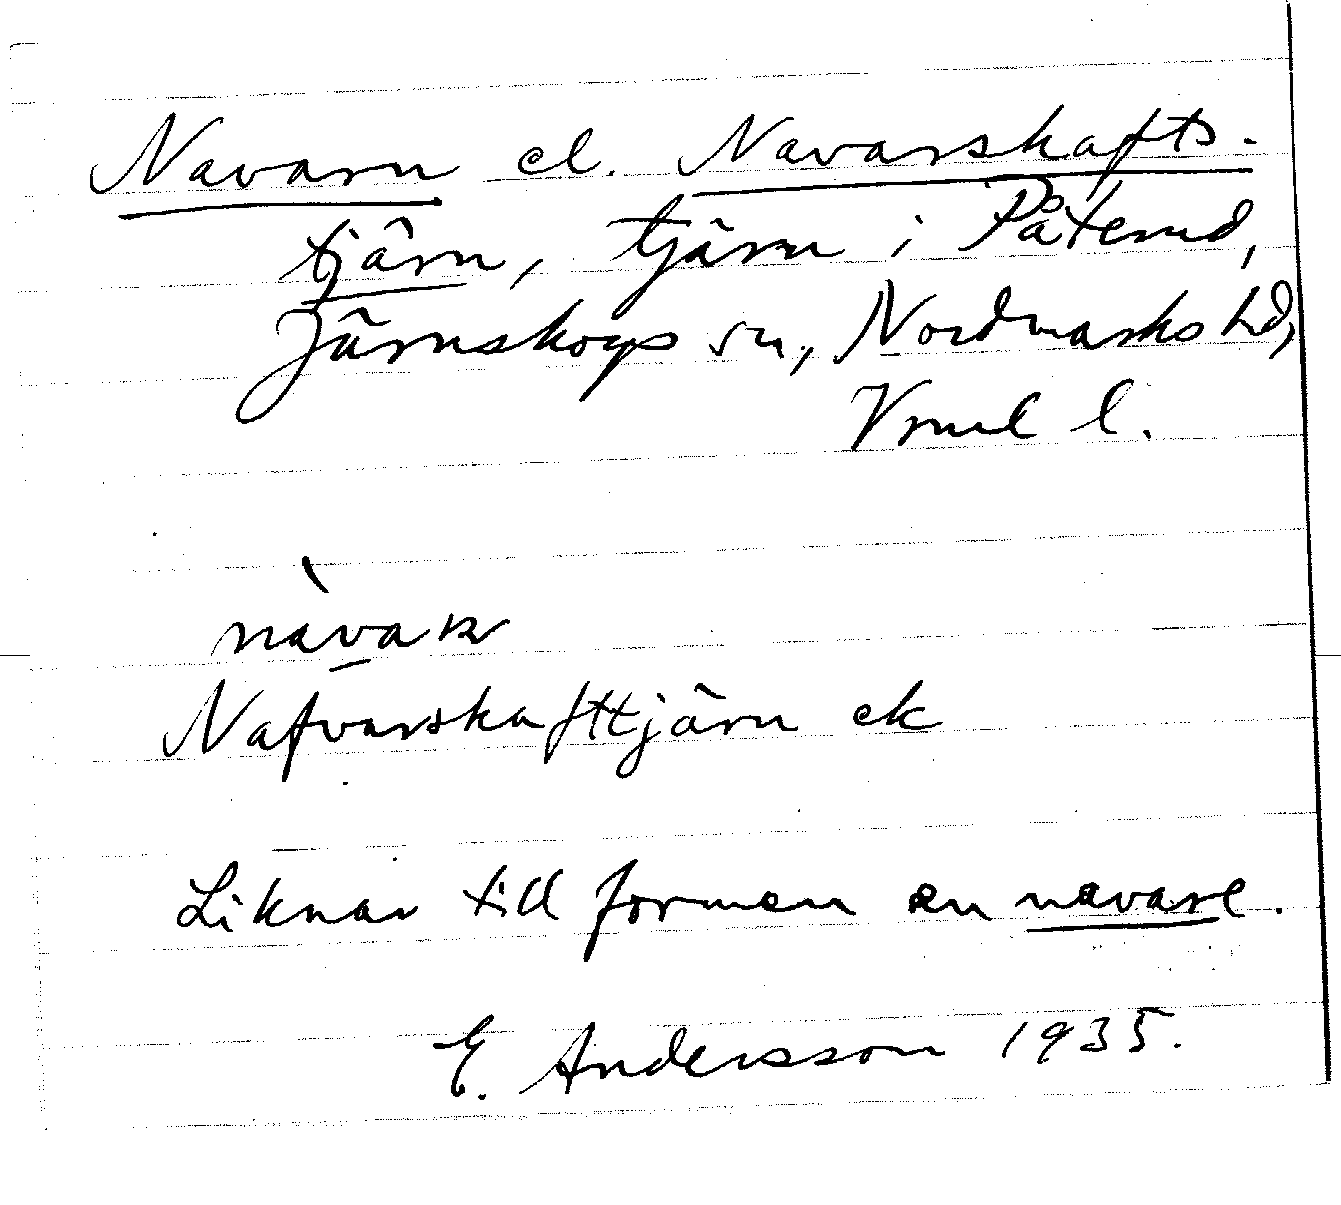 Navarn el. Navarskafts-
tjärn, tjärn i Påterud,
Järnskogs sn, Nordmarks hd,
Vrml l.
nàvaʀ
Nafvarskafttjärn ek
Liknar till formen en navare.
E. Andersson 1935.